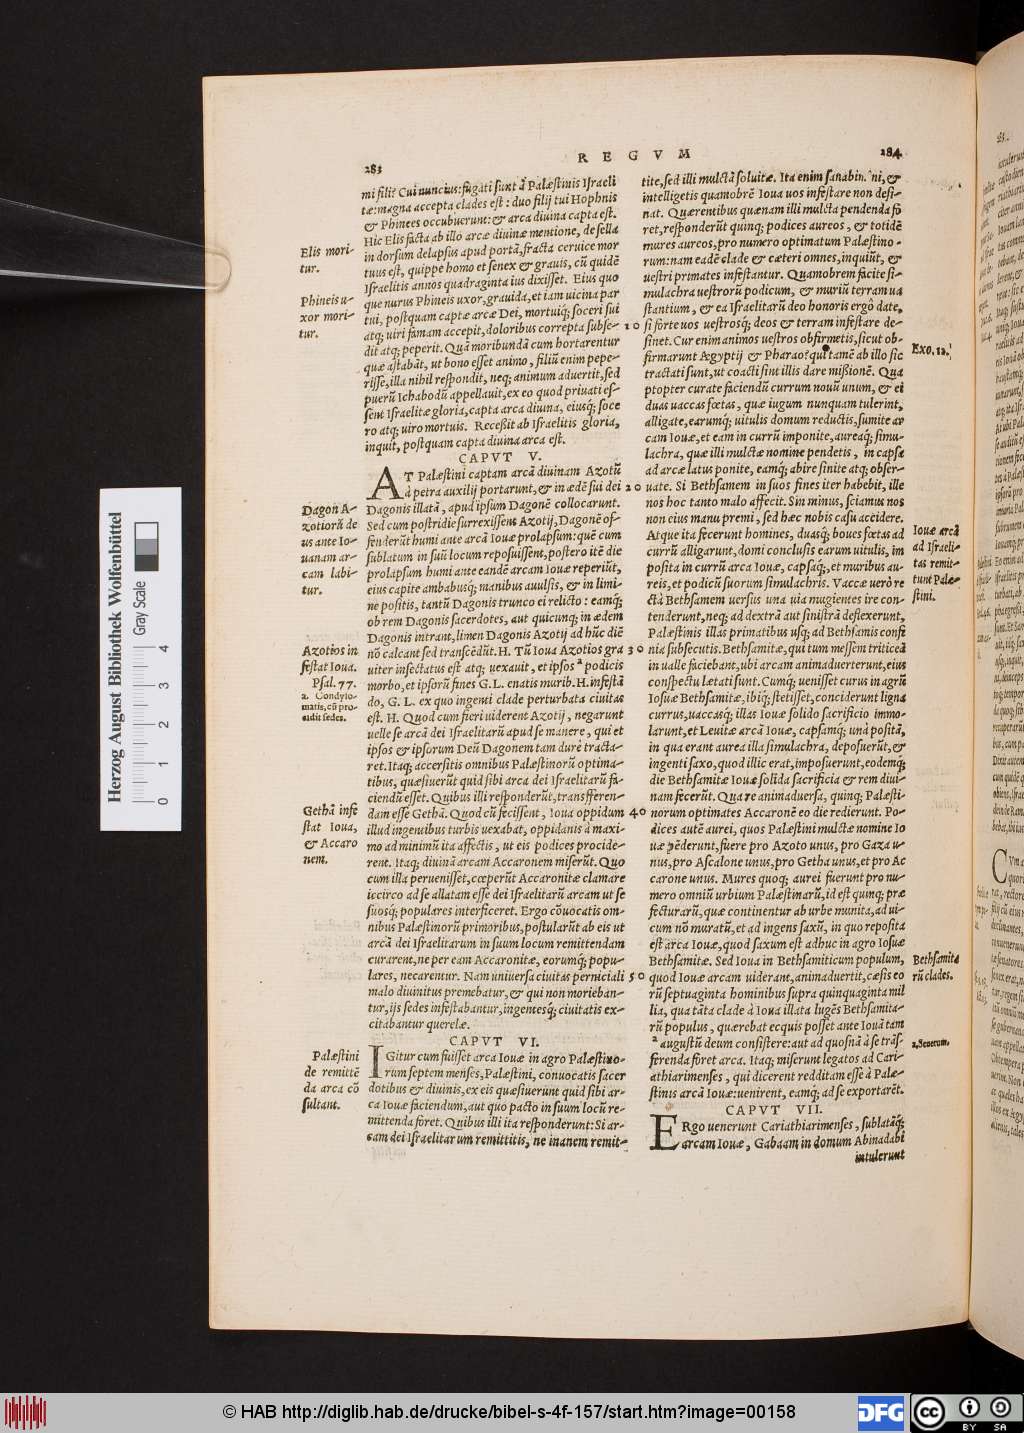 R E G V M
283
mi fili? Cui nuncius: fugati sunt à Palæstinis Israeli
tæ: magna accepta clades est: duo filij tui Hophnis
& Phinees occubuerunt: & arca diuina capta est.
Hic Elis facta ab illo arcæ diuinæ mentione, de sella
in dorsum delapsus apud portã, fracta ceruice mor
tuus est, quippe homo et senex & grauis, cũ quidẽ
Israelitis annos quadraginta ius dixisset. Eius quo
que nurus Phineis uxor, grauida, et iam uicina par
tui, postquam captæ arcæ Dei, mortuiq́; soceri sui
atq; uiri famam accepit, doloribus correpta subse-
dit atq; peperit. Quã moribundã cum hortarentur
quæ astabãt, ut bono esset animo, filiũ enim pepe-
risse, illa nihil respondit, neq; animum aduertit, sed
puerũ Ichabodũ appellauit, ex eo quod priuati es-
sent Israelitæ gloria, capta arca diuina, eiusq́; soce
ro atq; uiro mortuis. Recessit ab Israelitis gloria,
inquit, postquam capta diuina arca est.
CAPVT V.
AT Palæstini captam arcã diuinam Azotũ
à petra auxilij portarunt, & in ædẽ sui dei
Dagonis illatã, apud ipsum Dagonẽ collocarunt.
Sed cum postridie surrexissent Azotij, Dagonẽ of-
fenderũt humi ante arcã Iouæ prolapsum: quẽ cum
sublatum in suũ locum reposuissent, postero itẽ die
prolapsum humi ante eandẽ arcam Iouæ reperiũt,
eius capite ambabusq́; manibus auulsis, & in limi-
ne positis, tantũ Dagonis trunco ei relicto: eamq́;
ob rem Dagonis sacerdotes, aut quicunq; in ædem
Dagonis intrant, limen Dagonis Azotij ad hũc diẽ
nõ calcant sed transcẽdũt. H. Tũ Ioua Azotios gra
uiter insectatus est atq; uexauit, et ipsos a podicis
morbo, et ipsorũ fines G. L. enatis murib. H. infestã
do, G. L. ex quo ingenti clade perturbata ciuitas
est. H. Quod cum fieri uiderent Azotij, negarunt
uelle se arcã dei Israelitarũ apud se manere, qui et
ipsos & ipsorum Deũ Dagonem tam durè tracta-
ret. Itaq; accersitis omnibus Palæstinorũ optima-
tibus, quæsiuerũt quid sibi arca dei Israelitarũ fa-
ciendũ esset. Quibus illi responderũt, transferen-
dam esse Gethã. Quod cũ fecissent, Ioua oppidum
illud ingentibus turbis uexabat, oppidanis à maxi-
mo ad minimũ ita affectis, ut eis podices procide-
rent. Itaq; diuinã arcam Accaronem miserũt. Quo
cum illa peruenisset, cœperũt Accaronitæ clamare
iccirco ad se allatam esse dei Israelitarũ arcam ut se
suosq́; populares interficeret. Ergo cõuocatis om-
nibus Palæstinorũ primoribus, postularũt ab eis ut
arcã dei Israelitarum in suum locum remittendam
curarent, ne per eam Accaronitæ, eorumq́; popu-
lares, necarentur. Nam uniuersa ciuitas perniciali
malo diuinitus premebatur, & qui non morieban-
tur, ijs sedes infestabantur, ingentesq́; ciuitatis ex-
citabantur querelæ.
CAPVT VI.
IGitur cum fuisset arca Iouæ in agro Palæstino-
rum septem menses, Palæstini, conuocatis sacer
dotibus & diuinis, ex eis quæsiuerunt quid sibi ar-
ca Iouæ faciendum, aut quo pacto in suum locũ re-
mittenda foret. Quibus illi ita responderunt: Si ar-
cam dei Israelitarum remittitis, ne inanem remit-
Elis mori-
tur.
Phineis u-
xor mori-
tur.
Dagon A-
zotiorũ de
us ante Io-
uanam ar-
cam labi-
tur.
Azotios in
festat Ioua.
Psal. 77.
a. Condylo-
matis, cũ pro-
cidit sedes.
Gethã infe
stat Ioua,
& Accaro
nem.
Palæstini
de remittẽ
da arca cõ
sultant.
10
20
30
40
50
284
tite, sed illi mulctã soluite. Ita enim sanabimini, &
intelligetis quamobrẽ Ioua uos infestare non desi-
nat. Quærentibus quænam illi mulcta pendenda fo
ret, responderũt quinq; podices aureos, & totidẽ
mures aureos, pro numero optimatum Palæstino-
rum: nam eadẽ clade & cæteri omnes, inquiũt, &
uestri primates infestantur. Quamobrem facite si-
mulachra uestrorũ podicum, & muriũ terram ua
stantium, & ea Israelitarũ deo honoris ergô date,
si forte uos uestrosq́; deos & terram infestare de-
sinet. Cur enim animos uestros obfirmetis, sicut ob-
firmarunt Ægyptij & Pharao? qui tamẽ ab illo sic
tractati sunt, ut coacti sint illis dare missionẽ. Qua
ptopter curate faciendũ currum nouũ unum, & ei
duas uaccas fœtas, quæ iugum nunquam tulerint,
alligate, earumq́; uitulis domum reductis, sumite ar
cam Iouæ, et eam in currũ imponite, aureaq́; simu-
lachra, quæ illi mulctæ nomine pendetis, in capsa
ad arcæ latus ponite, eamq́; abire sinite atq; obser-
uate. Si Bethsamem in suos fines iter habebit, ille
nos hoc tanto malo affecit. Sin minus, sciamus nos
non eius manu premi, sed hæc nobis casu accidere.
Atque ita fecerunt homines, duasq́; boues fœtas ad
currũ alligarunt, domi conclusis earum uitulis, im
posita in currũ arca Iouæ, capsaq́;, et muribus au-
reis, et podicũ suorum simulachris. Vaccæ uerò re
ctà Bethsamem uersus una uia mugientes ire con-
tenderunt, neq; ad dextrã aut sinistrã deflexerunt,
Palæstinis illas primatibus usq; ad Bethsamis confi
nia subsecutis. Bethsamitæ, qui tum messem triticeã
in ualle faciebant, ubi arcam animaduerterunt, eius
conspectu lætati sunt. Cumq́; uenisset currus in agrũ
Iosuæ Bethsamitæ, ibiq́; stetisset, conciderunt ligna
currus, uaccasq́; illas Iouæ solido sacrificio immo-
larunt, et Leuitæ arcã Iouæ, capsamq́; unà positã,
in qua erant aurea illa simulachra, deposuerũt, &
ingenti saxo, quod illic erat, imposuerunt, eodemq́;
die Bethsamitæ Iouæ solida sacrificia & rem diui-
nam fecerũt. Qua re animaduersa, quinq; Palæsti-
norum optimates Accaronẽ eo die redierunt. Po-
dices autẽ aurei, quos Palæstini mulctæ nomine Io
uæ pẽderunt, fuere pro Azoto unus, pro Gaza u-
nus, pro Ascalone unus, pro Getha unus, et pro Ac
carone unus. Mures quoq; aurei fuerunt pro nu-
mero omniũ urbium Palæstinarũ, id est quinq; præ
fecturarũ, quæ continentur ab urbe munita, ad ui-
cum nõ muratũ, et ad ingens saxũ, in quo reposita
est arca Iouæ, quod saxum est adhuc in agro Iosuæ
Bethsamitæ. Sed Ioua in Bethsamiticum populum,
quod Iouæ arcam uiderant, animaduertit, cæsis eo
rũ septuaginta hominibus supra quinquaginta mil
lia, qua tãta clade à Ioua illata lugẽs Bethsamita-
rũ populus, quærebat ecquis posset ante Iouã tam
a augustũ deum consistere: aut ad quosnã à se trãs-
ferenda foret arca. Itaq; miserunt legatos ad Cari-
athiarimenses, qui dicerent redditam esse à Palæ-
stinis arcã Iouæ: uenirent, eamq́; ad se exportarẽt.
CAPVT VII.
ERgo uenerunt Cariathiarimenses, sublatãq́;
arcam Iouæ, Gabaam in domum Abinadabi
intulerunt
Exo. 12.
Iouæ arcã
ad Israeli-
tas remit-
tunt Palæ-
stini.
Bethsamita
rũ clades.
a. Seuerum.
Herzog August Bibliothek Wolfenbüttel
Gray Scale
0 1 2 3 4
© HAB http://diglib.hab.de/drucke/bibel-s-4f-157/start.htm?image=00158
DFG
cc
BY SA